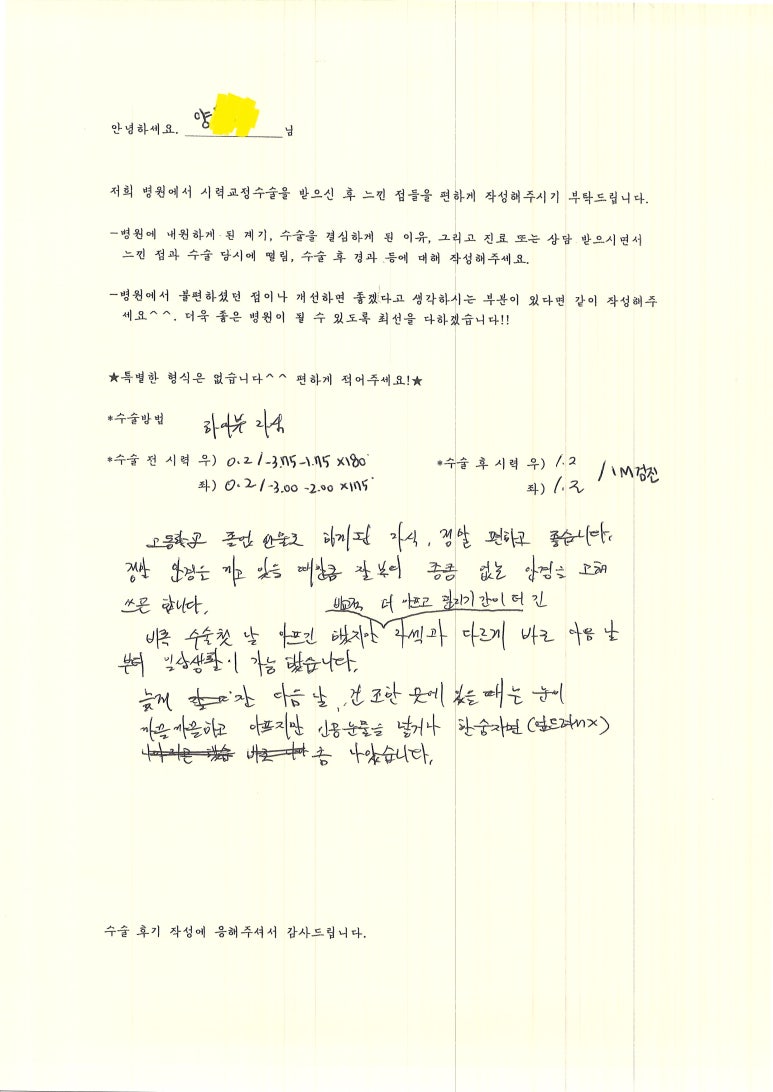 안녕하세요. 양 님
저희 병원에서 시력교정수술을 받으신 후 느낀 점들을 편하게 작성해주시기 부탁드립니다.
-병원에 내원하게 된 계기, 수술을 결심하게 된 이유, 그리고 진료 또는 상담 받으시면서
느낀 점과 수술 당시에 떨림, 수술 후 경과 등에 대해 작성해주세요.
-병원에서 불편하셨던 점이나 개선하면 좋겠다고 생각하시는 부분이 있다면 같이 작성해주
세요^^. 더욱 좋은 병원이 될 수 있도록 최선을 다하겠습니다!!
★특별한 형식은 없습니다^^ 편하게 적어주세요!★
*수술방법 라식
*수술 전 시력 우) 0.2/-3.75-1.75 x180 *수술 후 시력 우) 1.2
좌) 0.2/-3.00 -2.00 x175 좌) 1.2 /1M검진
고등학교 졸업 선물로 하게된 라식, 정말 편하고 좋습니다.
정말 안경을 끼고 있을 때만큼 잘 보여 종종 없는 안경을
쓰곤 합니다. 더 아프고 기간이 더 긴
비록 수술 첫 날 아프긴 했지만 라섹과 다르게 바로 다음 날
부터 일상생활이 가능 했습니다.
늦게 잔 다음 날, 건조한 곳에 있을 때는 눈이
까끌까끌하고 아프지만 인공눈물을 넣거나 한숨자면 (엎드려서X)
좀 나았습니다.
수술 후기 작성에 응해주셔서 감사드립니다.